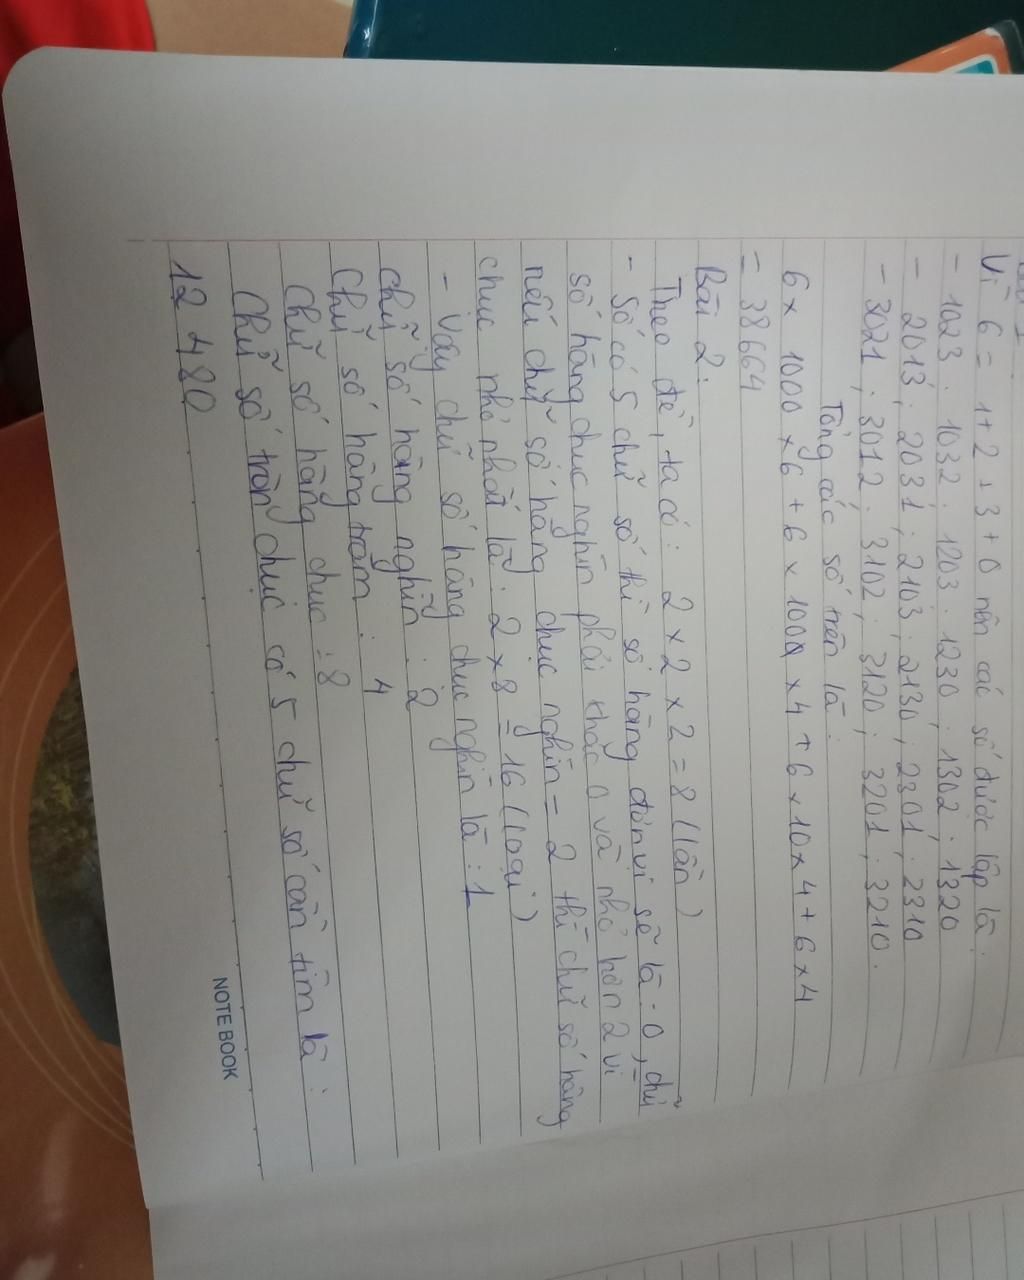 Vì 6 = 1 + 2 + 3 + 0 nên các số được lập là:
- 1023; 1032; 1203; 1230; 1302; 1320
- 2013; 2031; 2103; 2130; 2301; 2310
- 3021; 3012; 3102; 3120; 3201; 3210.
Tổng các số trên là:
6 x 1000 x 6 + 6 x 100 x 4 + 6 x 10 x 4 + 6 x 4
= 38664
Bài 2:
Theo đề, ta có: 2 x 2 x 2 = 8 (lần)
- Số có 5 chữ số thì số hàng đơn vị sẽ là: 0, chữ
số hàng chục nghìn phải khác 0 và nhỏ hơn 2 vì
nếu chữ số hàng chục nghìn = 2 thì chữ số hàng
chục nhỏ nhất là: 2 x 8 = 16 (loại)
- Vậy chữ số hàng chục nghìn là: 1
Chữ số hàng nghìn: 2
Chữ số hàng trăm: 4
Chữ số hàng chục: 8
Chữ số tròn chục có 5 chữ số cần tìm là:
12 480
NOTE BOOK